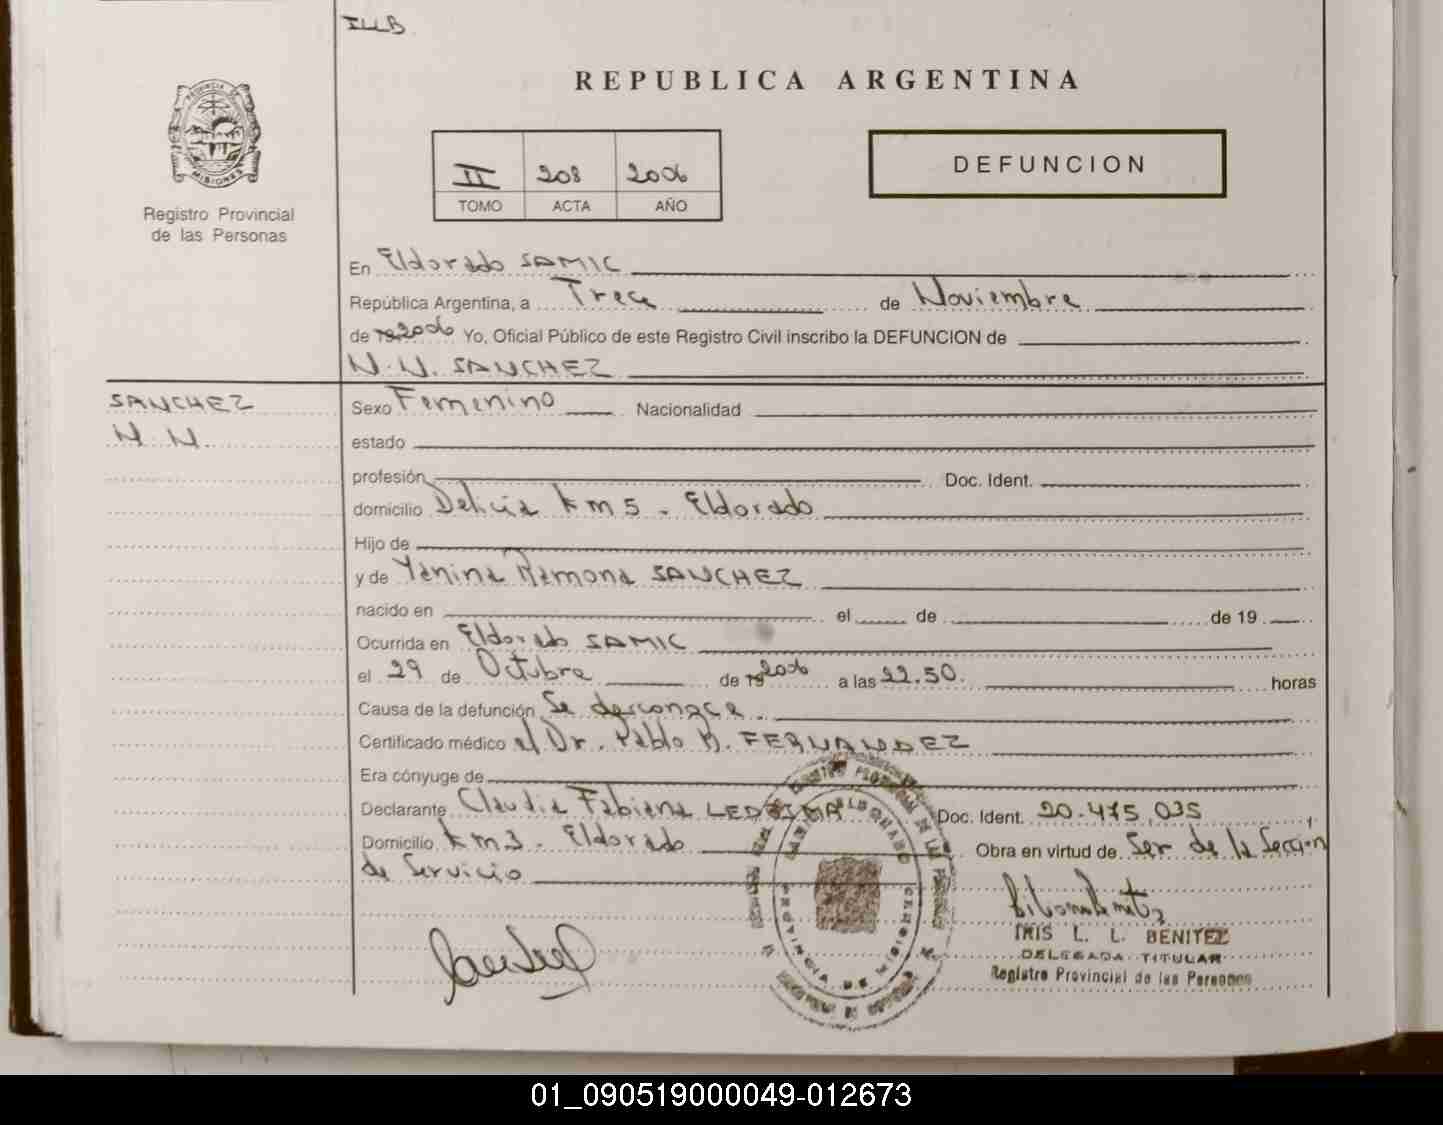 ILLB
REPUBLICA ARGENTINA
PROVINCIA DE
MISIONES
II 208 2006
TOMO ACTA AÑO
DEFUNCION
Registro Provincial
de las Personas
En Eldorado SAMIC
República Argentina, a Trece de Noviembre
de 19 2006 Yo, Oficial Público de este Registro Civil inscribo la DEFUNCION de
N.N. SANCHEZ
SANCHEZ
N. N.
Sexo Femenino Nacionalidad
estado
profesión Doc. Ident.
domicilio Delicia km 5 - Eldorado
Hijo de
y de Yanina Ramona SANCHEZ
nacido en el de de 19
Ocurrida en Eldorado SAMIC
el 29 de Octubre de 19 2006 a las 22.50. horas
Causa de la defunción Se desconoce
Certificado médico el Dr. Pablo D. FERNANDEZ
Era cónyuge de
Declarante Claudia Fabiana LEDESMA Doc. Ident. 20.475.035
Domicilio km 3 - Eldorado Obra en virtud de Ser de la Sección
de Servicio
PROVINCIA DE MISIONES
IRIS L. L. BENITEZ
DELEGADA TITULAR
Registro Provincial de las Personas
01_090519000049-012673